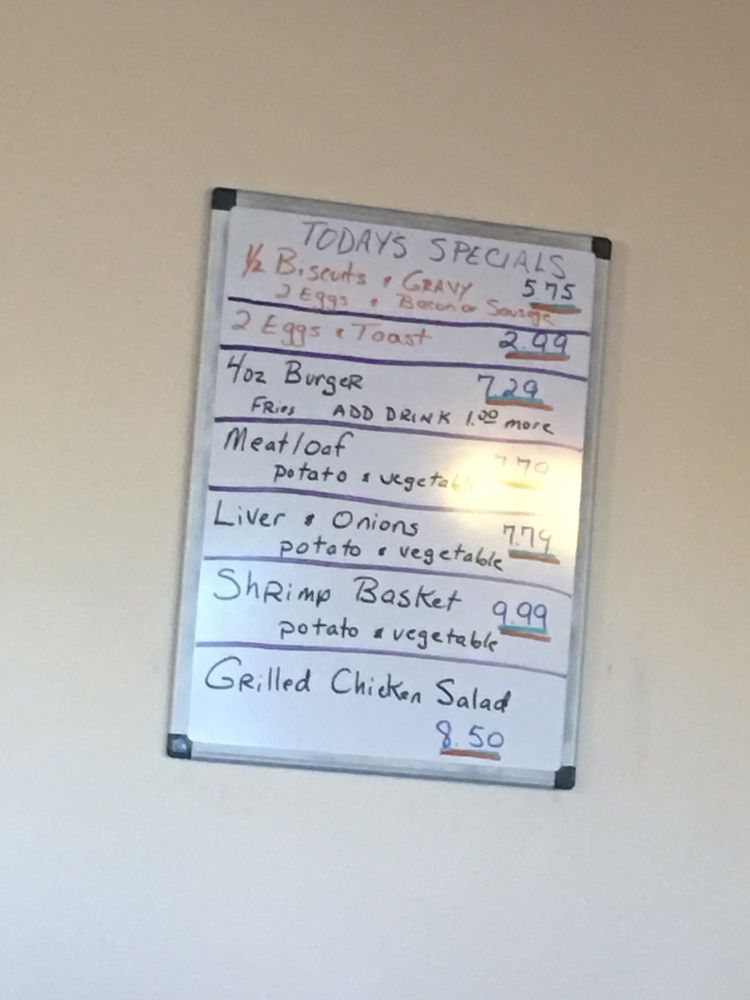 TODAY'S SPECIALS
1/2 Biscuits & GRAVY 5.75
2 Eggs & Bacon or Sausage
2 Eggs & Toast 2.99
4oz BurgeR 7.29
FRies ADD DRINK 1.00 more
Meatloaf
potato & vegetable
Liver & Onions 7.79
potato & vegetable
ShRimp Basket 9.99
potato & vegetable
GRilled Chicken Salad
8.50